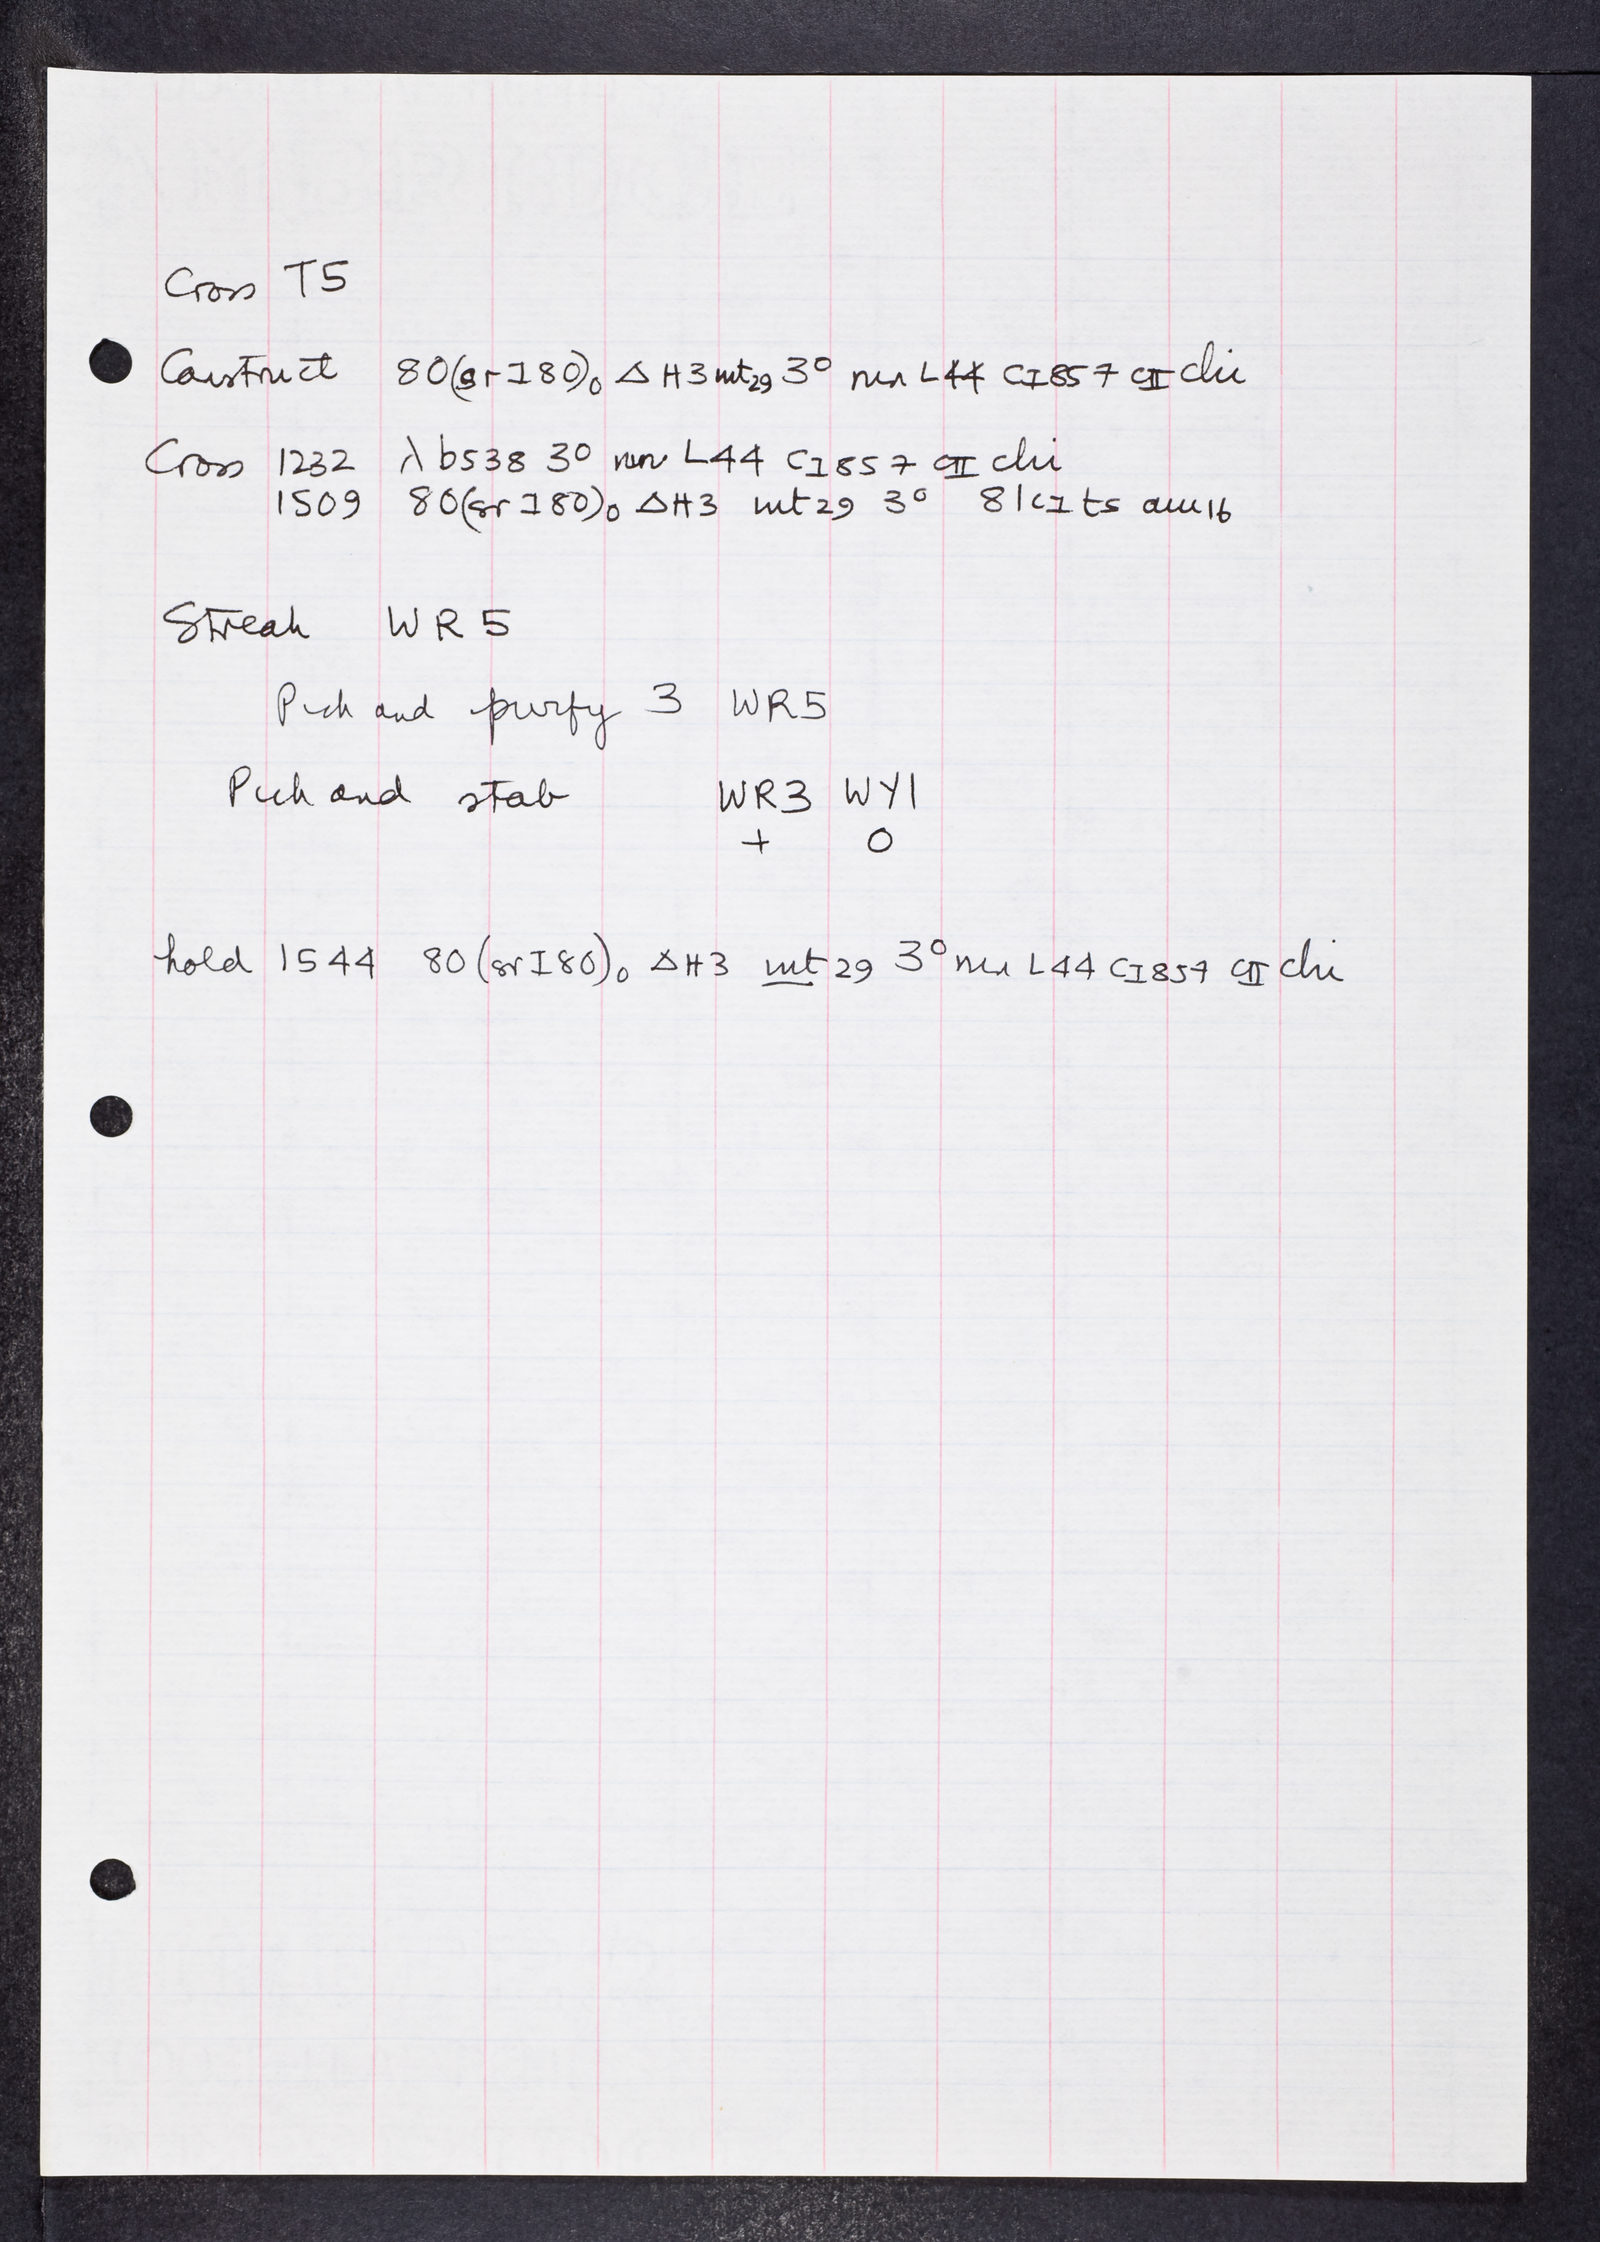 Cross T5
Construct 80(srI80)₀ ΔH3 int29 3° nin L44 cI857 cII chi
Cross 1232 λ b538 3° nin L44 cI857 cII chi
1509 80(srI80)₀ ΔH3 int29 3° 81cI ts am16
Streak WR5
Pick and purify 3 WR5
Pick and stab WR3 WY1
+ 0
hold 1544 80(srI80)₀ ΔH3 int29 3° nin L44 cI857 cII chi